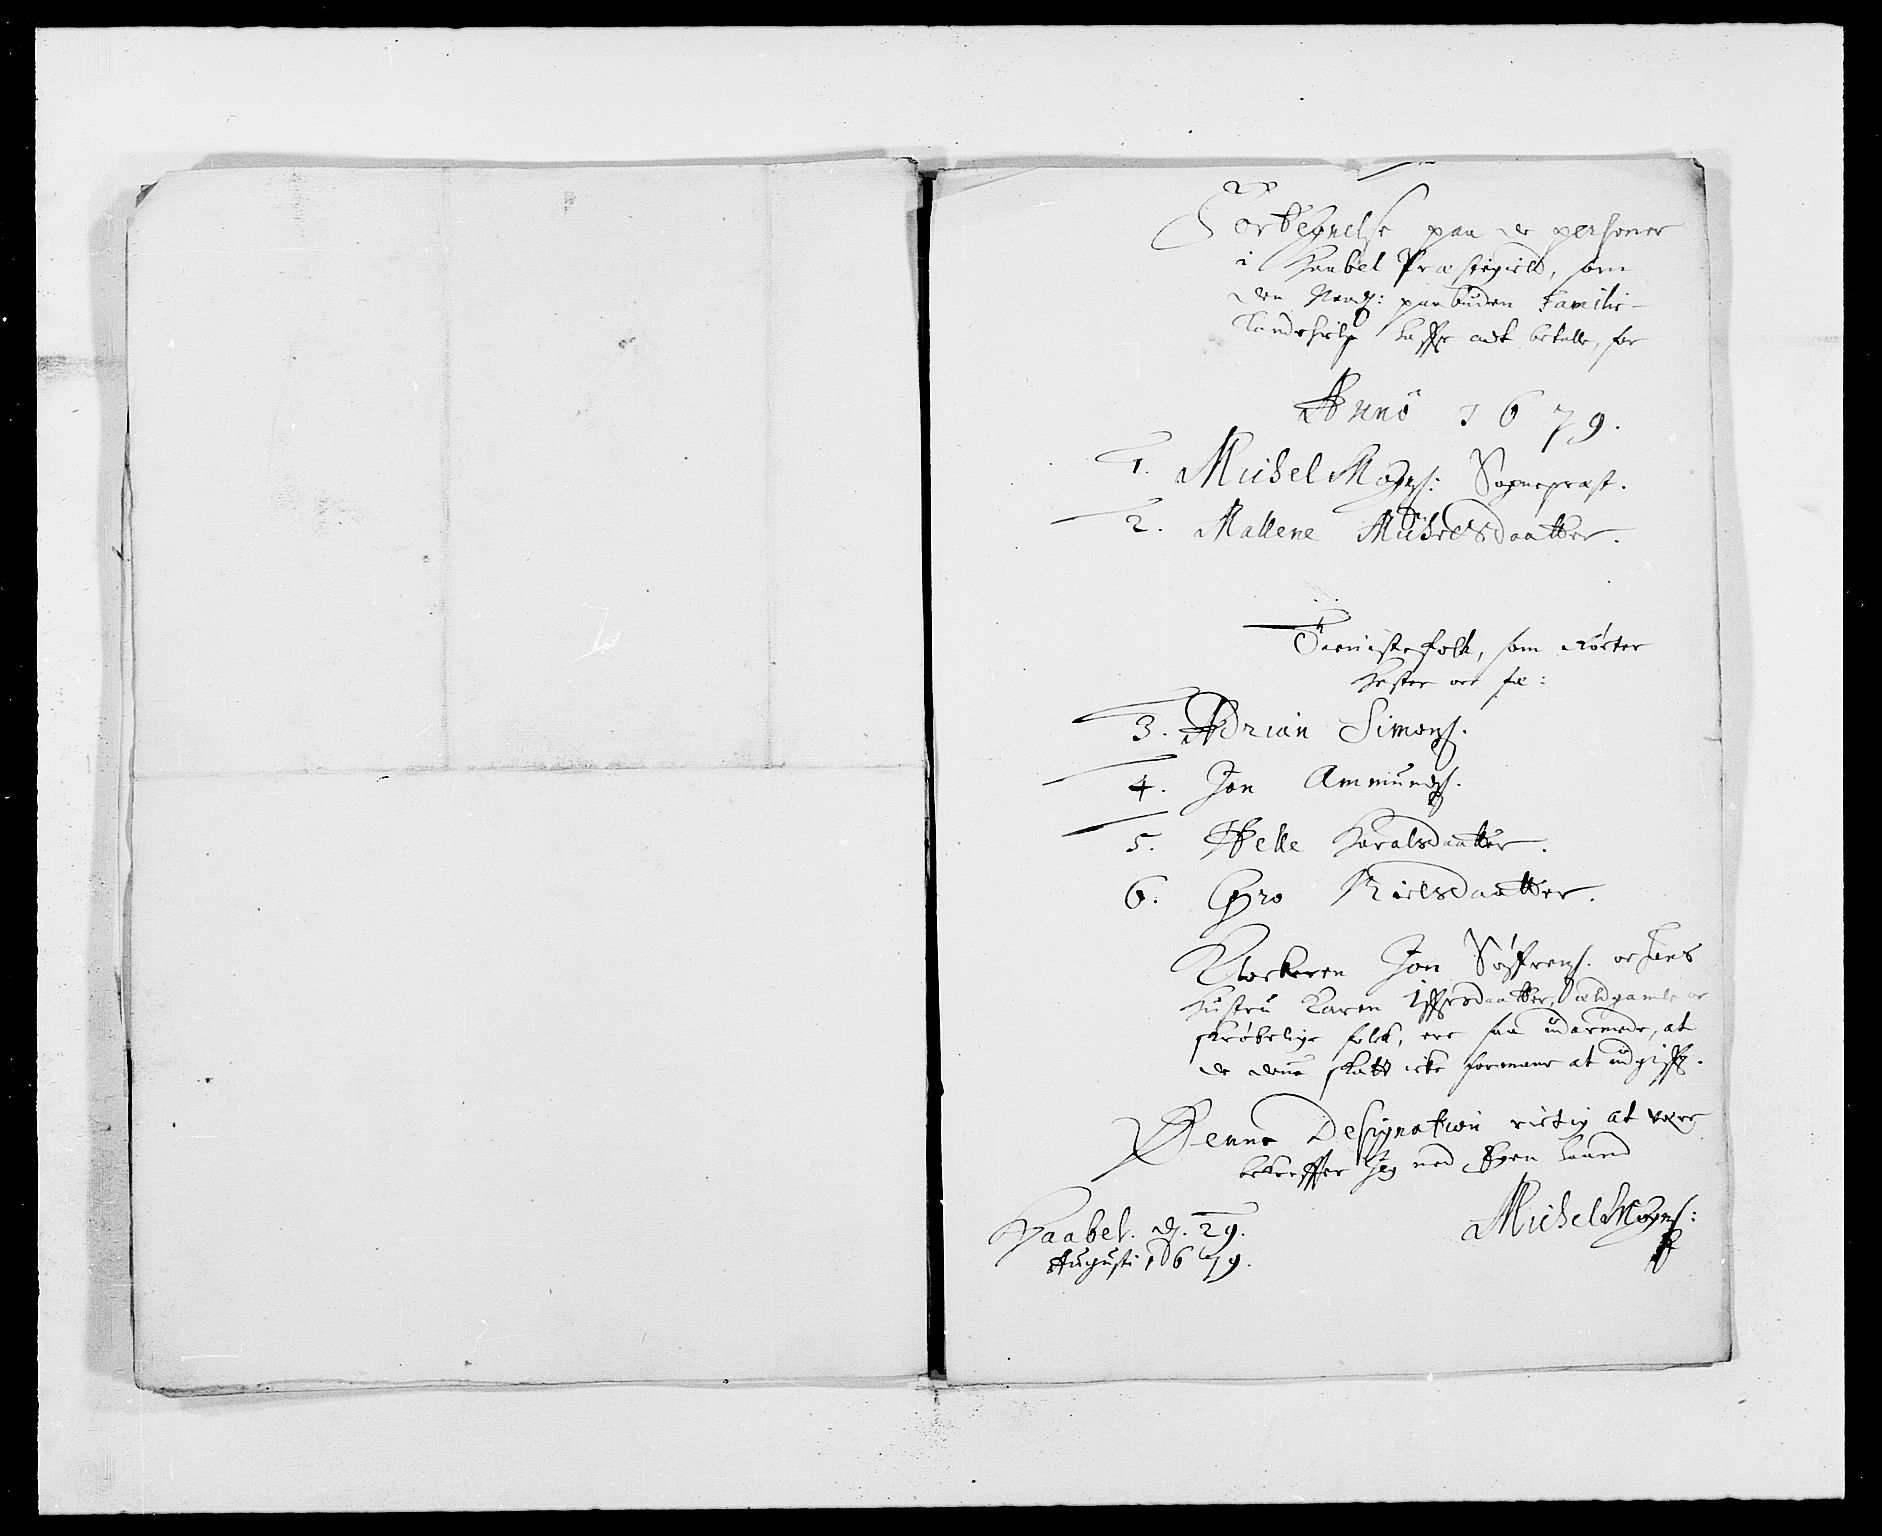 Fortegnelse paa de personer
i Haabel Præstegield, som
den Naadg: paabudene Familie-
Landehielp haffer at betalle, for
Anno 1679.
1. Michel Mogns: Sognepræst.
2. Mallene Michelsdaatter.
Tienistefolk, som
hester oc fæ:
3. Adrian Simons.
4. Jon Ammunds.
5. Pelle Haralsdaatter.
6. Gro Nielsdaatter.
Klockeren Jon Søffrens. oc hans
hustru Karen Iffersdaatter, ældgamle oc
skrøbelige folck, ere saa udarmede, at
de denne skatt icke formaar at udgiffe.
Denne Designation rictig at være
bekreffter Jeg med Egen haand
Haabel. d. 29.
Augusti 1679.
Michel Mogns: